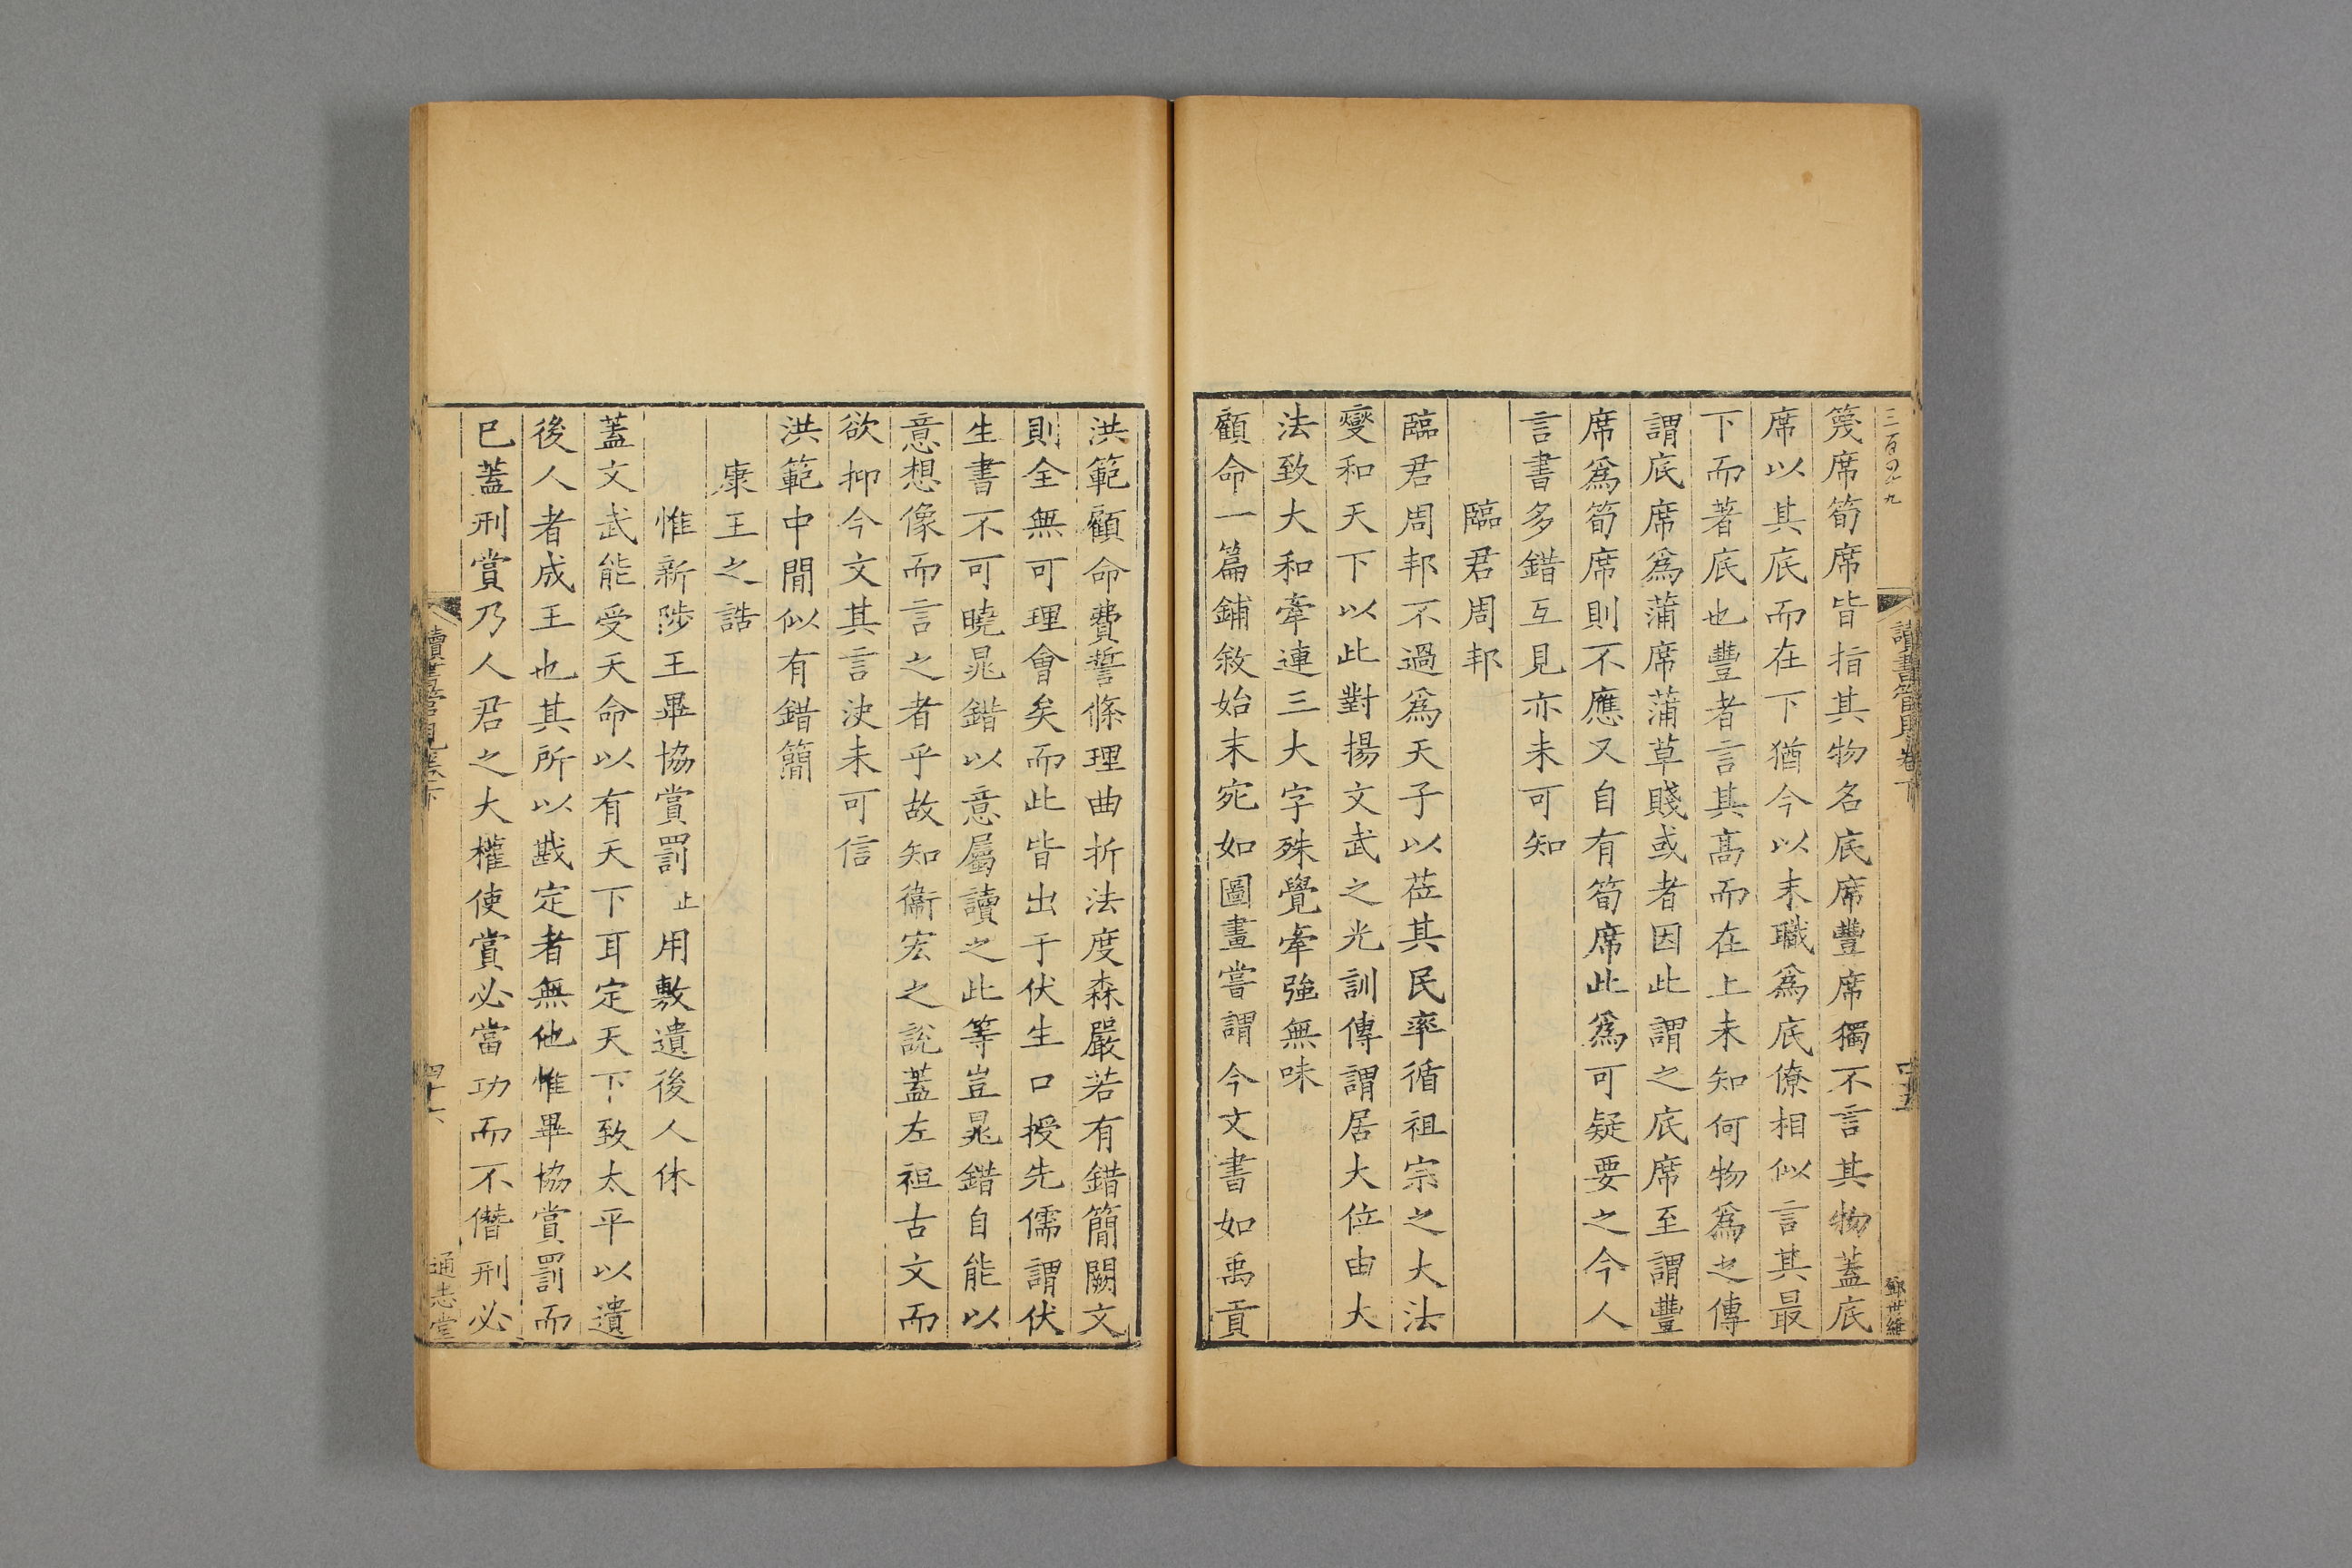 三百四九
讀書管見卷下
四十五
鄧世維
篾席筍席皆指其物名底席豐席獨不言其物蓋底
席以其底而在下猶今以末職爲底僚相似言其最
下而著底也豐者言其高而在上未知何物爲之傳
謂底席爲蒲席蒲草賤或者因此謂之底席至謂豐
席爲筍席則不應又自有筍席此爲可疑要之今人
言書多錯互見亦未可知
臨君周邦
臨君周邦不過爲天子以莅其民率循祖宗之大法
燮和天下以此對揚文武之光訓傳謂居大位由大
法致大和牽連三大字殊覺牽強無味
顧命一篇鋪敘始末宛如圖畫嘗謂今文書如禹貢
洪範顧命費誓條理曲折法度森嚴若有錯簡闕文
則全無可理會矣而此皆出于伏生口授先儒謂伏
生書不可曉晁錯以意屬讀之此等豈晁錯自能以
意想像而言之者乎故知衞宏之說蓋左袒古文而
欲抑今文其言決未可信
洪範中間似有錯簡
康王之誥
惟新陟王畢協賞罰止用敷遺後人休
蓋文武能受天命以有天下耳定天下致太平以遺
後人者成王也其所以戡定者無他惟畢協賞罰而
已蓋刑賞乃人君之大權使賞必當功而不僭刑必
讀書管見卷下
四十六
通志堂